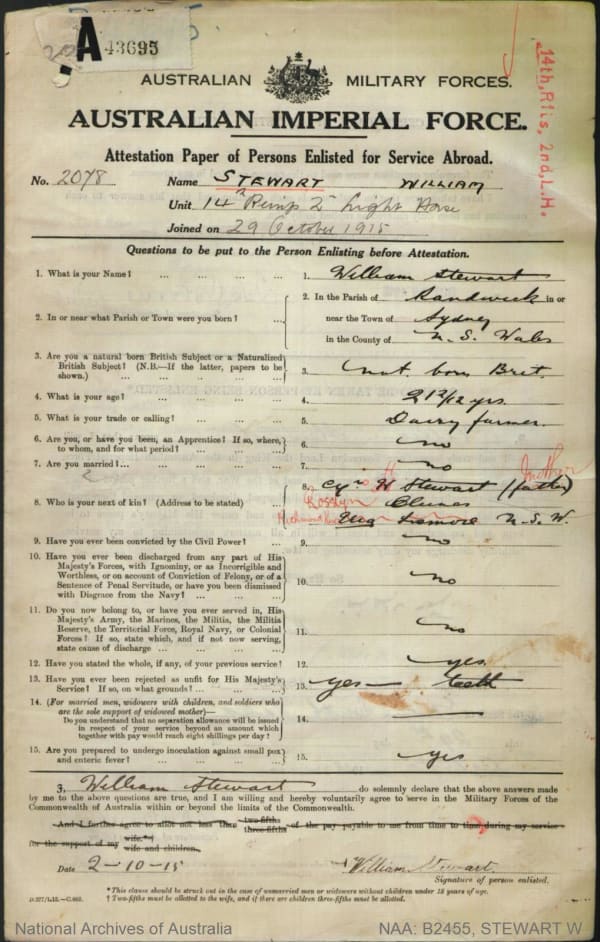 A 43695
AUSTRALIAN MILITARY FORCES.
AUSTRALIAN IMPERIAL FORCE.
14th, R1is, 2nd, L.H.
Attestation Paper of Persons Enlisted for Service Abroad.
No. 2078 Name STEWART WILLIAM
Unit 14th Reinfs 2nd Light Horse
Joined on 29 October 1915
Questions to be put to the Person Enlisting before Attestation.
1. What is your Name? ... ... ... ... 1. William Stewart
2. In or near what Parish or Town were you born? ... 2. In the Parish of Randwick in or
near the Town of Sydney
in the County of N. S. Wales
3. Are you a natural born British Subject or a Naturalized
British Subject? (N.B.—If the latter, papers to be
shown.) ... ... ... ... 3. nat. born Brit.
4. What is your age? ... ... ... ... 4. yrs.
5. What is your trade or calling? ... ... ... 5. Dairy farmer.
6. Are you, or have you been, an Apprentice? If so, where,
to whom, and for what period? ... ... ... 6. no
7. Are you married? ... ... ... ... 7. no
8. Who is your next of kin? (Address to be stated) ... 8. W Stewart (father) Mother
Rosslyn Clunes
Richmond River Via Lismore N. S. W.
9. Have you ever been convicted by the Civil Power? ... 9. no
10. Have you ever been discharged from any part of His
Majesty's Forces, with Ignominy, or as Incorrigible and
Worthless, or on account of Conviction of Felony, or of a
Sentence of Penal Servitude, or have you been dismissed
with Disgrace from the Navy? ... ... ... 10. no
11. Do you now belong to, or have you ever served in, His
Majesty's Army, the Marines, the Militia, the Militia
Reserve, the Territorial Force, Royal Navy, or Colonial
Forces? If so, state which, and if not now serving,
state cause of discharge ... ... ... ... 11. no
12. Have you stated the whole, if any, of your previous service? 12. yes
13. Have you ever been rejected as unfit for His Majesty's
Service? If so, on what grounds? ... ... ... 13. yes — teeth
14. (For married men, widowers with children, and soldiers who
are the sole support of widowed mother)—
Do you understand that no separation allowance will be issued
in respect of your service beyond an amount which
together with pay would reach eight shillings per day? ... 14. —
15. Are you prepared to undergo inoculation against small pox
and enteric fever? ... ... ... ... 15. yes
I, William Stewart do solemnly declare that the above answers made
by me to the above questions are true, and I am willing and hereby voluntarily agree to serve in the Military Forces of the
Commonwealth of Australia within or beyond the limits of the Commonwealth.
And I further agree to allot not less than two-fifths three-fifths of the pay payable to me from time to time during my service
for the support of my wife.*† wife and children.
Date 2-10-15 William Stewart.
Signature of person enlisted.
* This clause should be struck out in the case of unmarried men or widowers without children under 18 years of age.
† Two-fifths must be allotted to the wife, and if there are children three-fifths must be allotted.
National Archives of Australia NAA: B2455, STEWART W